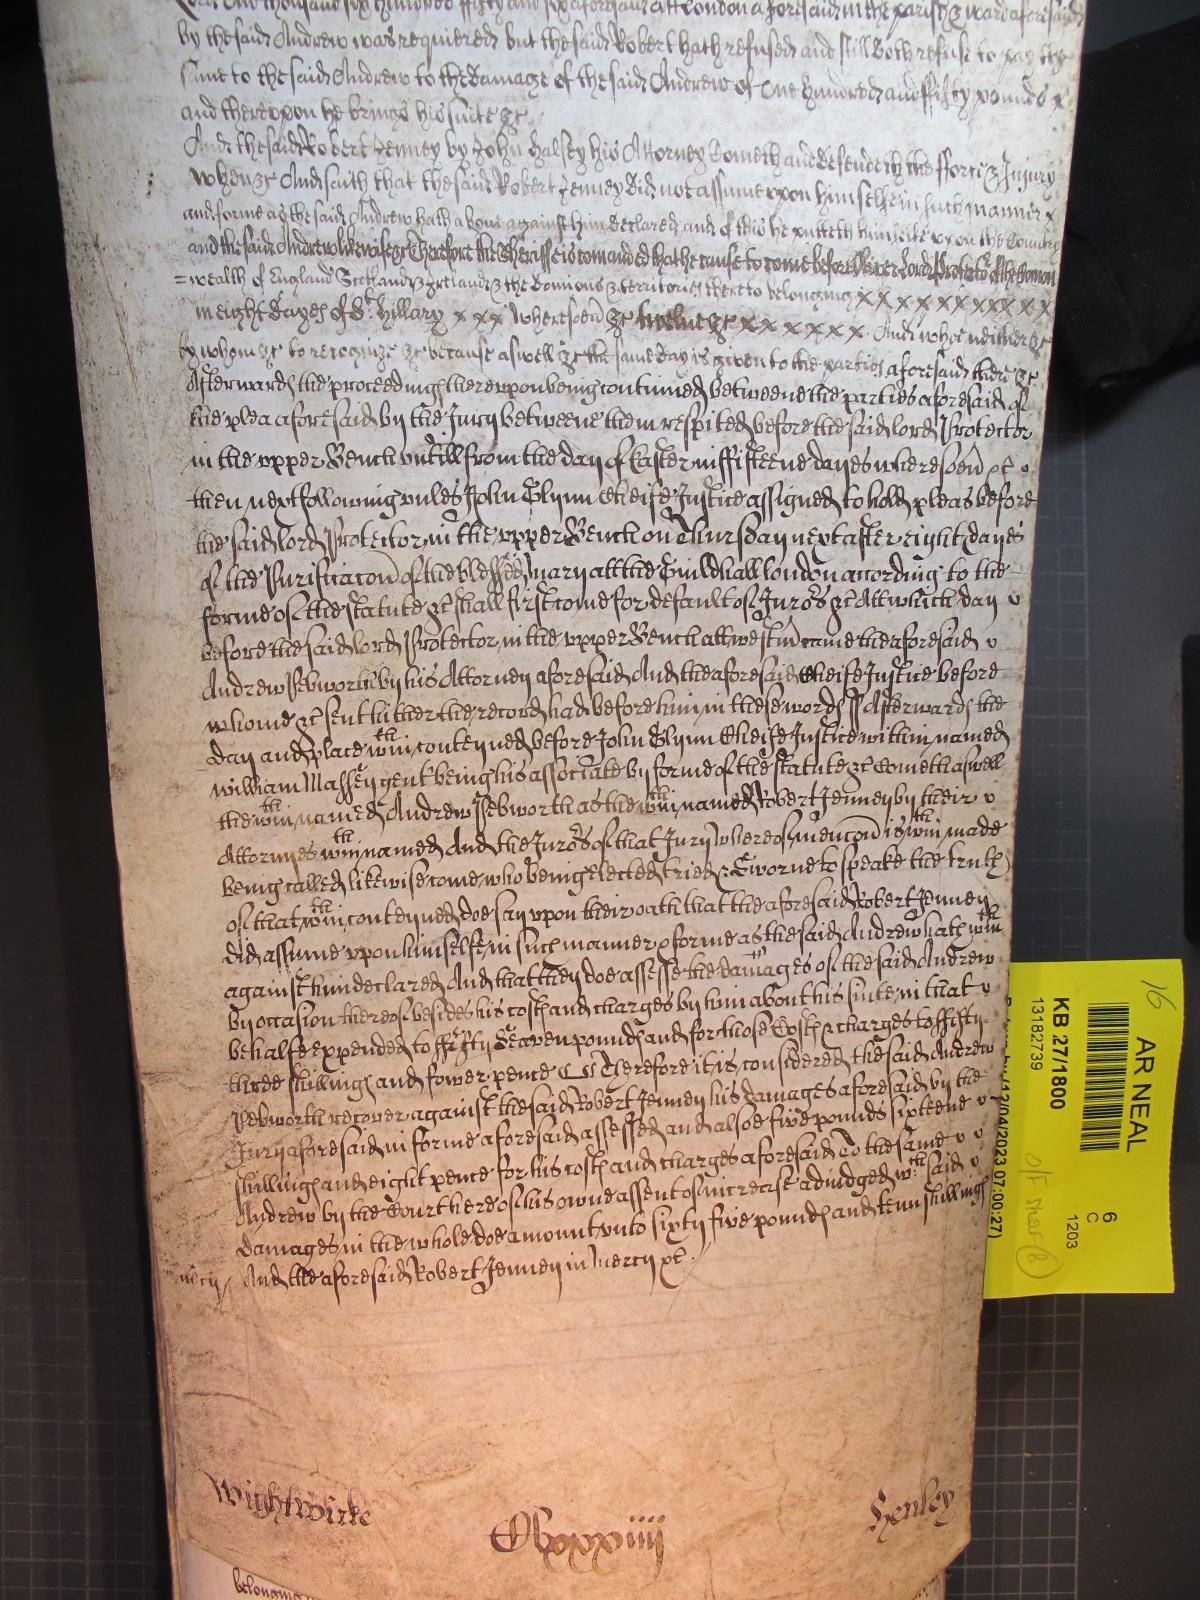 Lord One thousand six hundred fiffty and six aforesaid att London aforesaid in the parish & ward aforesaid
by the said Andrew was requiered but the said Robert hath refused and still doth refuse to pay the
same to the said Andrew to the damage of the said Andrew of One hundred and fifty pounds x
and thereupon he brings his suite &c
And the said Robert Jenney by John Halsey his Attorney Cometh and defendeth the fforce & Injury
when &c And saith that the said Robert Jenney did not assume upon himselfe in such manner x
and forme as the said Andrew hath above against him declared and of this he putteth himselfe upon the Countrey
and the said Andrew likewise &c Therefore the Sheriffe is comanded that he cause to come before the Lord Protector of the Comon
=wealth of England Scotland & Ireland & the Dominions & territories thereto belonging x x x x x x x x x x
in eight dayes of St. Hillary x x x Whereoen &c twelve &c x x x x x x And who neither &c
by whom &c to recognize &c because aswell &c the same day is given to the parties aforesaid there &c
Afterwards the proceedings thereupon being continued betweene the parties aforesaid of
the plea aforesaid by the Jury betweene them respited before the said lord Protector
in the upper Bench untill from the day of Easter in ffifteene dayes wheresoen &c v
then next following unles John Glynn Cheife Justice assigned to hold pleas before
the said lord Protector in the upper Bench on Thursday next after eight dayes
of the Purificacon of the blessed Mary att the Guildhall london according to the
forme of the statute &c shall first come for default of Juro's &c Att which day v
before the said lord Protector in the upper Bench att westm came the aforesaid v
Andrew Pebworth by his Attorney aforesaid And the aforesaid Cheife Justice before
whome &c sent hither the record had before him in these words ss Afterwards the
day and place wthin conteyned before John Glynn Cheife Justice within named
William Massey gent being his associate by forme of the statute &c Come th aswell
the wthin named Andrew Pebworth as the wthin named Robert Jenney by their v
Attornyes wthin named And the Juro's of that Jury whereof mencon is wthin made
being called likewise come, who being elected tried & Sworne to speake the truth
of that wthin conteyned doe say upon their oath that the aforesaid Robert Jenney
did assume upon himselfe in such manner & forme as the said Andrew hath wthin
against him declared And that they doe assesse the damages of the said Andrew
by occasion thereof besides his costs and charges by him about his suite in that v
behalfe expended to ffifty Seaven pounds and for those Costs & charges to ffifty
three shillings and fower pence Therefore it is considered the said Andrew
Pebworth recover against the said Robert Jenney his damages aforesaid by the
Jury aforesaid in forme aforesaid assessed and alsoe five pounds sixteene v
shillings and eight pence for his costs and charges aforesaid to the same v v
Andrew by the Court here of his owne assent of increase adiudged wch said v
damages in the whole doe amount unto sixty five pounds and tenn shillings
mercy And the aforesaid Robert Jenney in mercy &c
Wightwicke
Henley
belonging
16
AR NEAL
KB 27/1800
13182739
6
C
1203
12/04/2023 07:00:27)